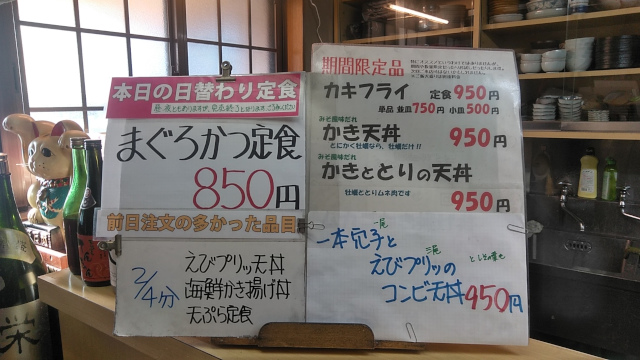 本日の日替わり定食
まぐろかつ定食
850円
前日注文の多かった品目
2/4分
えびプリッ天丼
海鮮かき揚げ丼
天ぷら定食
期間限定品
カキフライ 定食950円
単品 並皿750円 小皿500円
みそ風味だれ
かき天丼 950円
とにかく牡蠣なら、牡蠣だけ!!
みそ風味だれ
かきととりの天丼
牡蠣ととりムネ肉です
950円
一本穴子と
えびプリッの
コンビ天丼950円
栄